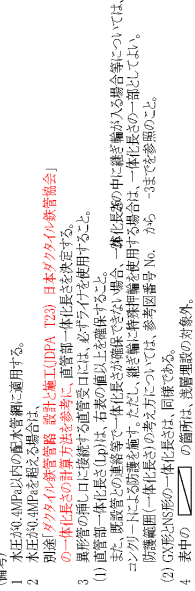 (備考)
1 水圧が0.4MPa以内の配水管網に適用する。
2 水圧が0.4MPaを超える場合は、
別途「ダクタイル鉄管管路 設計と施工(JDPA T23) 日本ダクタイル鉄管協会」
の一体化長さの計算方法を参考に、直管部一体化長さを決定する。
3 異形管の挿し口に接続する直管受口には、必ずライナを使用すること。
(1) 直管部一体化長さ(Lp)は、右表の値以上を確保すること。
また、既設管との連絡等で一体化長さが確保できない場合、一体化長さの中に継ぎ輪が入る場合等については、
コンクリートによる防護を施す。ただし、継ぎ輪に特殊押輪を使用する場合は、一体化長さの一部としてよい。
防護範囲(一体化長さ)の考え方については、参考図番号No. から -3までを参照のこと。
(2) GX形とNS形の一体化長さは、同様である。
4 表中の の箇所は、浅層埋設の対象外。